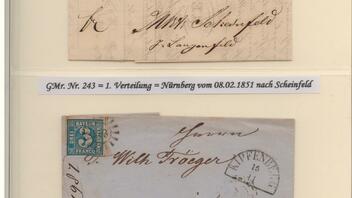 Mkt Scheinfeld
p. Langenfeld
GMr. Nr. 243 = 1. Verteilung = Nürnberg vom 08.02.1851 nach Scheinfeld
BAYERN
3
FRANCO
Herrn
Wilh Troeger
KIPFENBERG